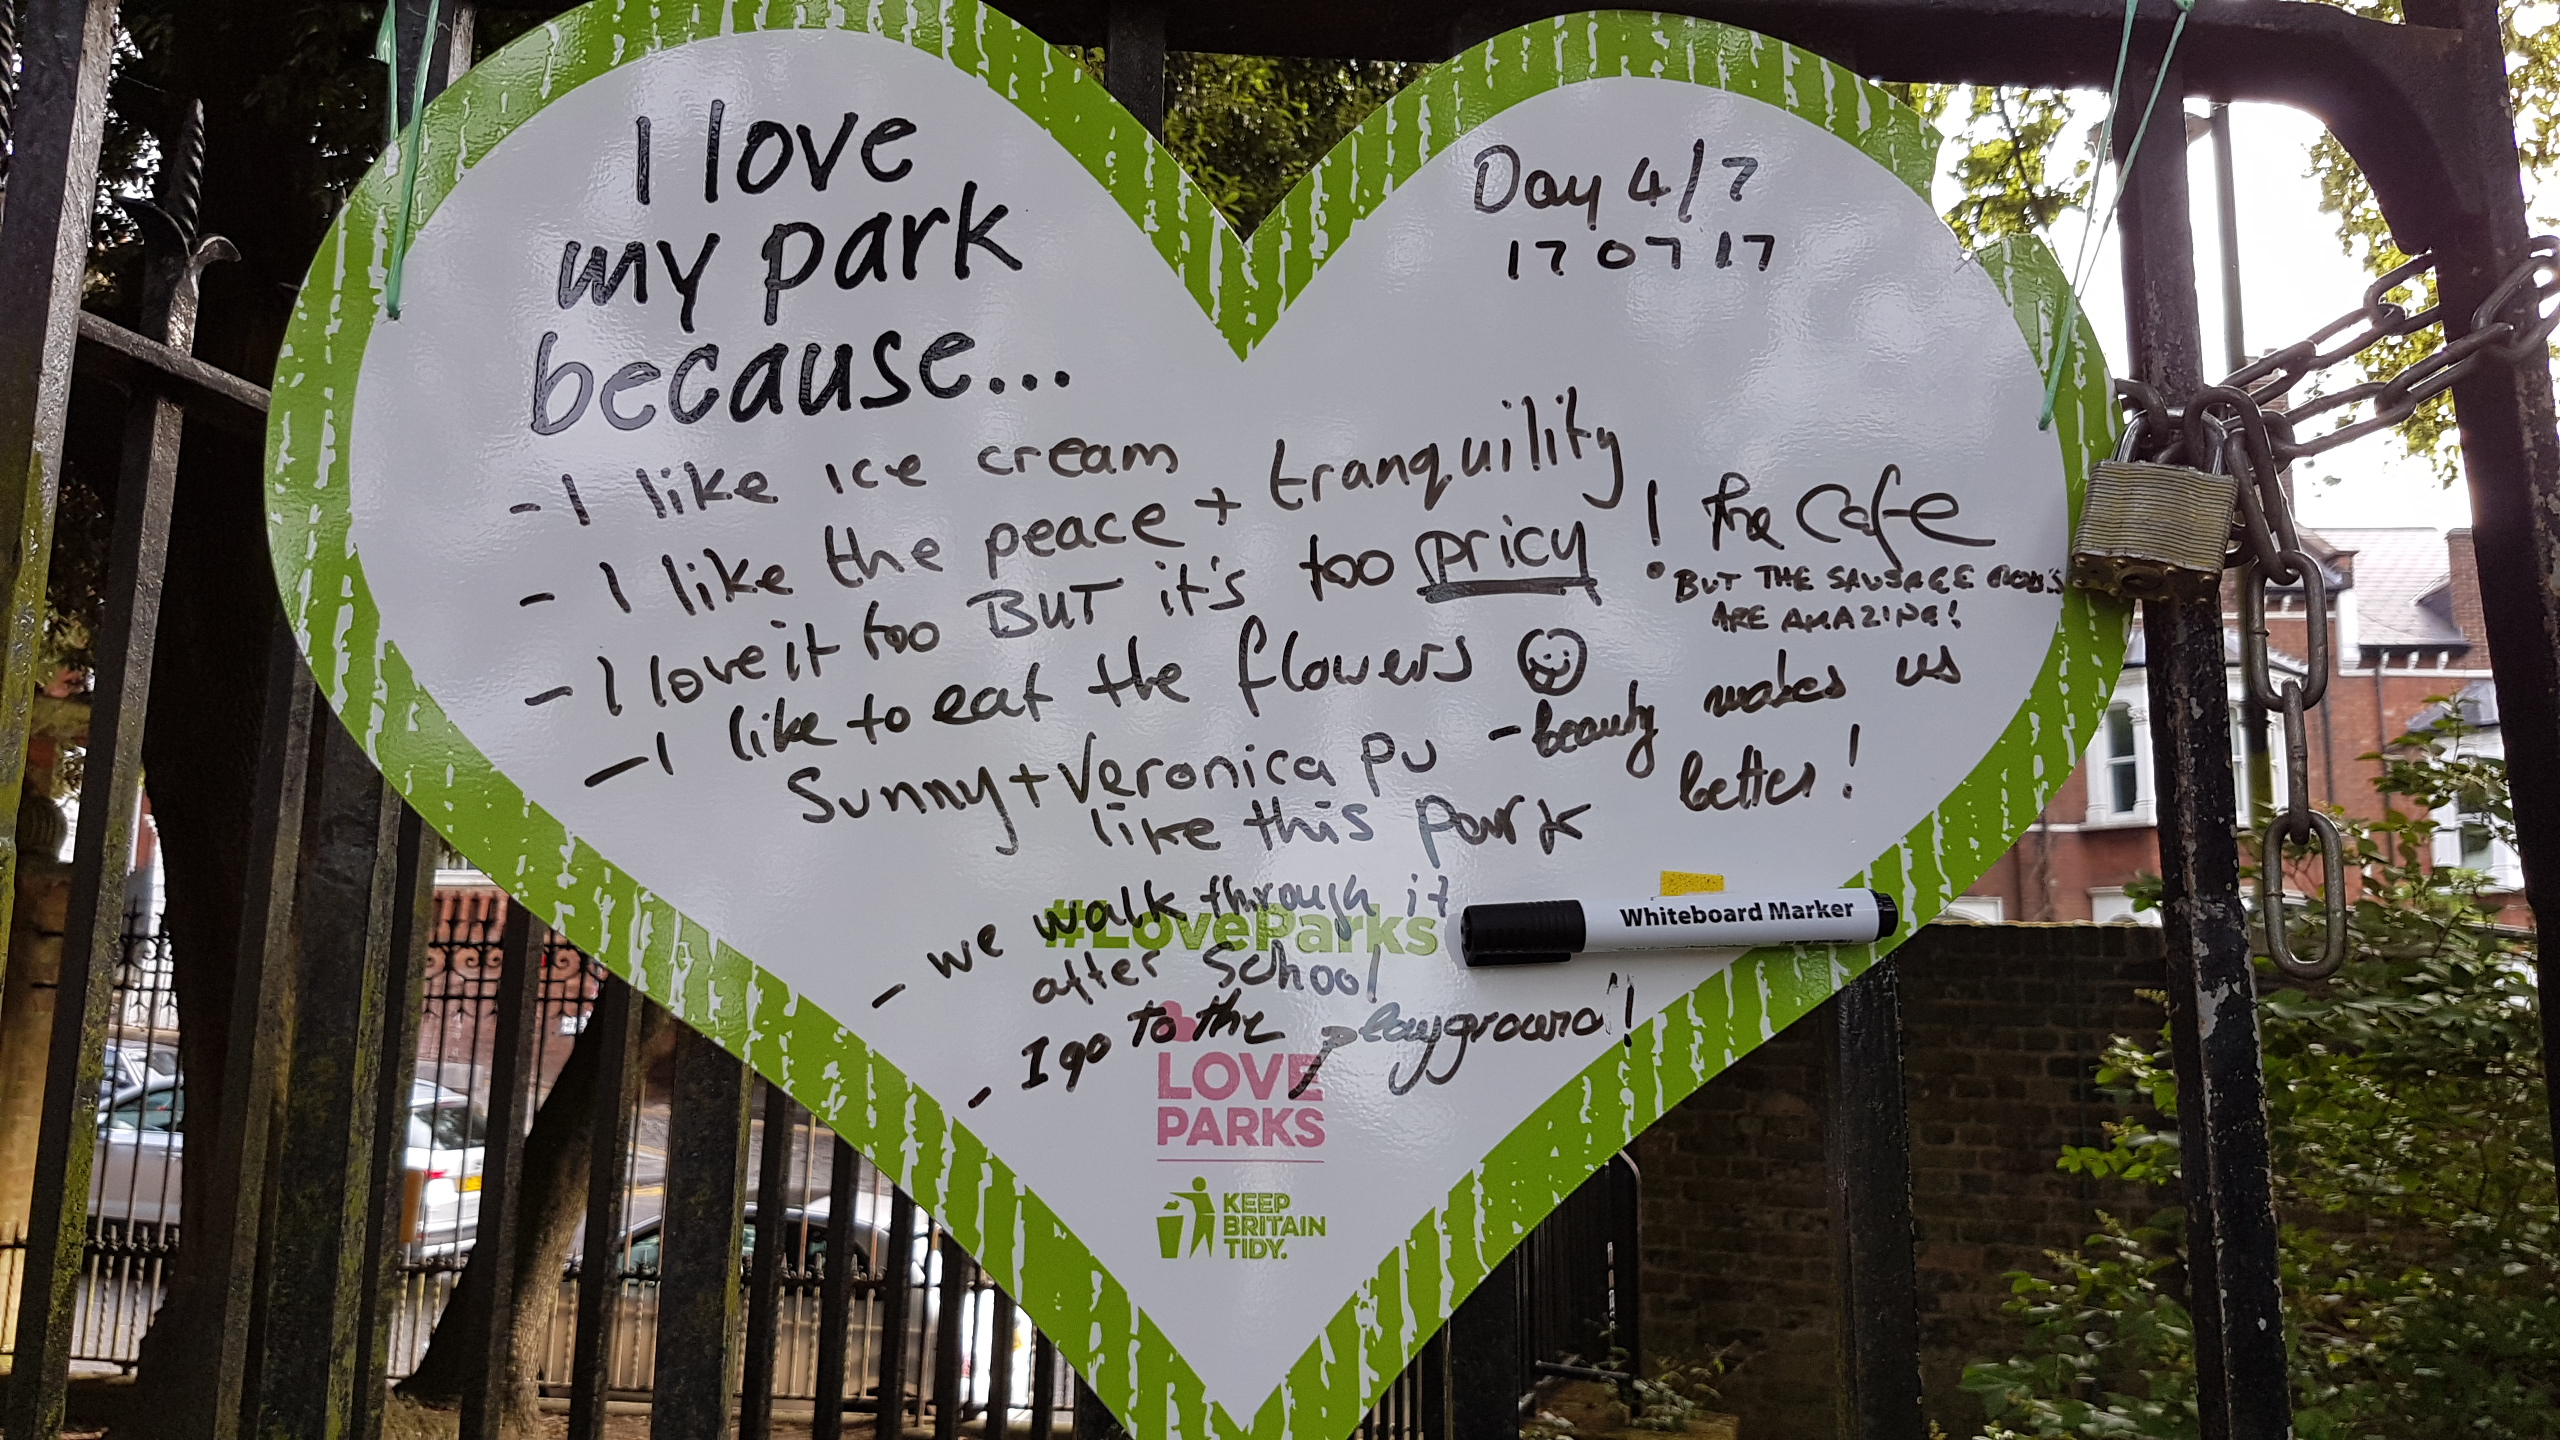 I love
my park
because...
Day 4/7
17 07 17
- I like ice cream
- I like the peace + tranquility
- I love it too BUT it's too pricy ! The Cafe
BUT THE SAUSAGE ROLLS
ARE AMAZING!
- I like to eat the flowers
Sunny + Veronica PU
like this park
- beauty makes us
better!
- we walk through it
after School
- I go to the playground!
#LoveParks
LOVE
PARKS
KEEP
BRITAIN
TIDY.
Whiteboard Marker